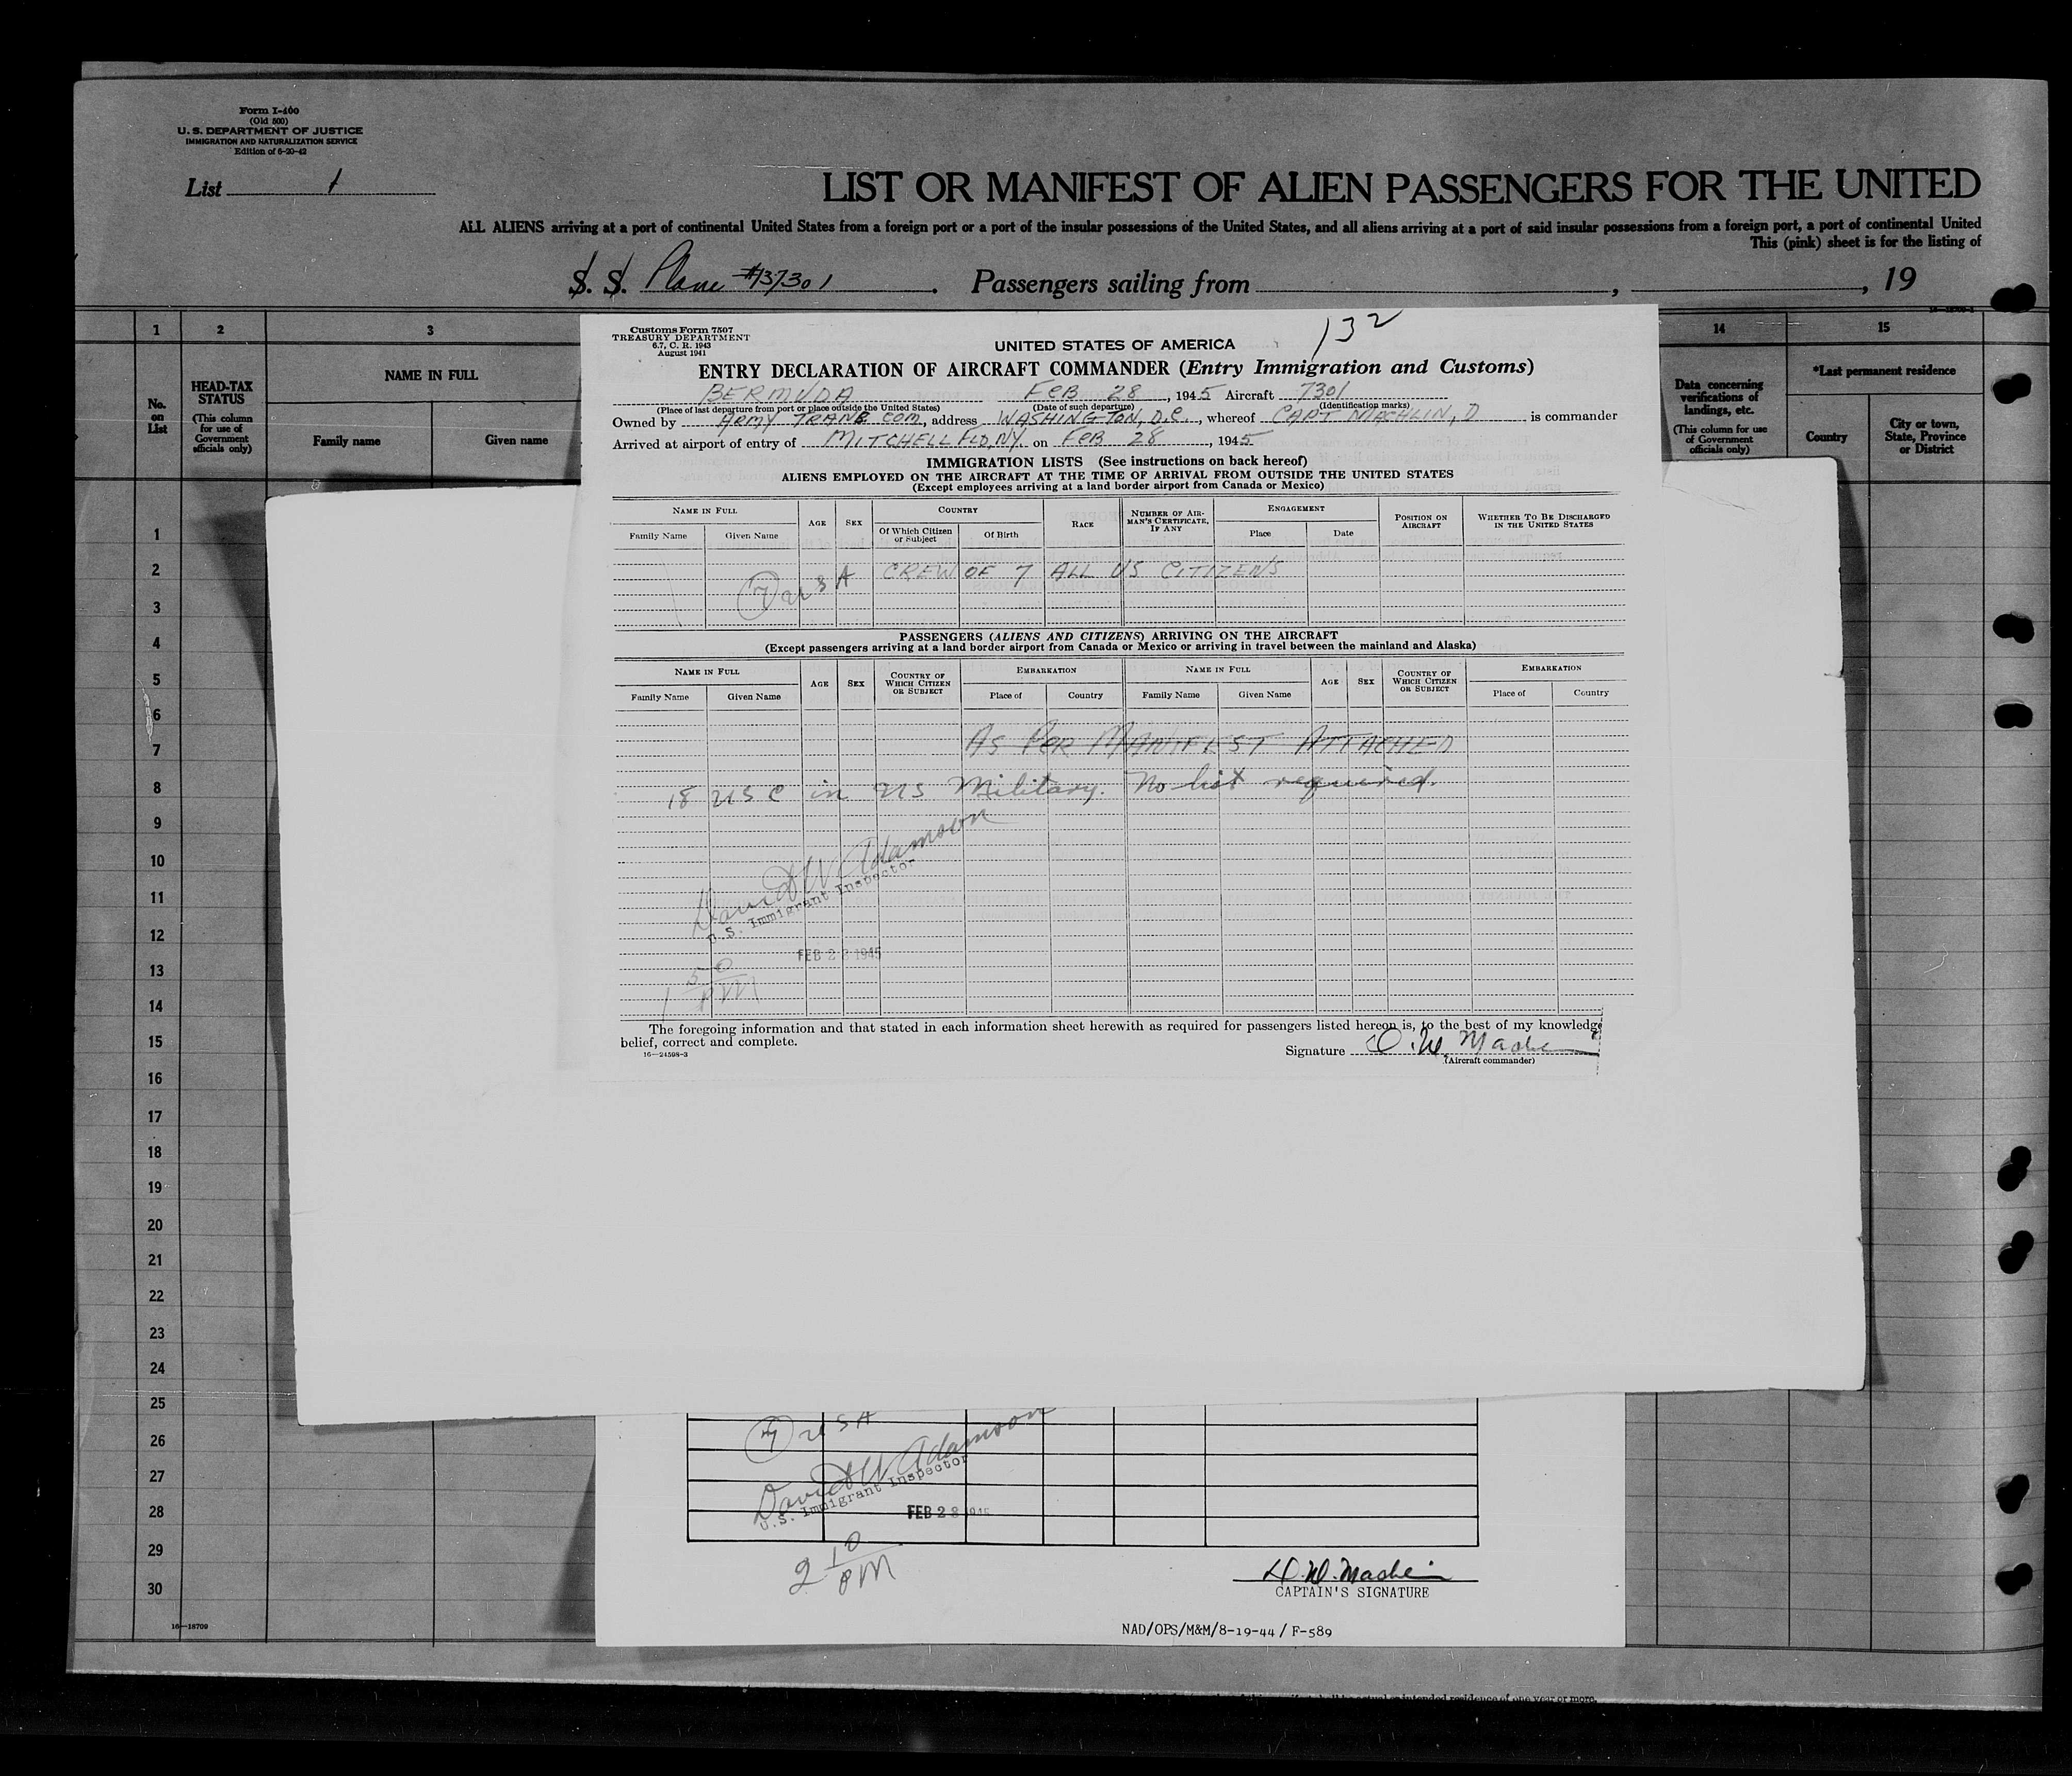 Form I-460
(Old 500)
U. S. DEPARTMENT OF JUSTICE
IMMIGRATION AND NATURALIZATION SERVICE
Edition of 6-20-42
List 1
LIST OR MANIFEST OF ALIEN PASSENGERS FOR THE UNITED
ALL ALIENS arriving at a port of continental United States from a foreign port or a port of the insular possessions of the United States, and all aliens arriving at a port of said insular possessions from a foreign port, a port of continental United
This (pink) sheet is for the listing of
S. S. Plane #137301. Passengers sailing from , , 19
1 2 3 14 15
No. on List
HEAD-TAX STATUS
(This column for use of Government officials only)
NAME IN FULL
Family name Given name
Data concerning verifications of landings, etc.
(This column for use of Government officials only)
*Last permanent residence
Country City or town, State, Province or District
Customs Form 7507
TREASURY DEPARTMENT
6.7, C. R. 1943
August 1941
132
UNITED STATES OF AMERICA
ENTRY DECLARATION OF AIRCRAFT COMMANDER (Entry Immigration and Customs)
BERMUDA FEB 28, 1945 Aircraft 7301
(Place of last departure from port or place outside the United States) (Date of such departure) (Identification marks)
Owned by ARMY TRANS COM, address WASHINGTON, D.C., whereof CAPT MACHLIN, D is commander
Arrived at airport of entry of MITCHELL FLD, NY on FEB 28, 1945
IMMIGRATION LISTS (See instructions on back hereof)
ALIENS EMPLOYED ON THE AIRCRAFT AT THE TIME OF ARRIVAL FROM OUTSIDE THE UNITED STATES
(Except employees arriving at a land border airport from Canada or Mexico)
NAME IN FULL AGE SEX COUNTRY RACE NUMBER OF AIRMAN'S CERTIFICATE, IF ANY ENGAGEMENT POSITION ON AIRCRAFT WHETHER TO BE DISCHARGED IN THE UNITED STATES
Family Name Given Name Of Which Citizen or Subject Of Birth Place Date
7 USA CREW OF 7 ALL US CITIZENS
PASSENGERS (ALIENS AND CITIZENS) ARRIVING ON THE AIRCRAFT
(Except passengers arriving at a land border airport from Canada or Mexico or arriving in travel between the mainland and Alaska)
NAME IN FULL AGE SEX COUNTRY OF WHICH CITIZEN OR SUBJECT EMBARKATION NAME IN FULL AGE SEX COUNTRY OF WHICH CITIZEN OR SUBJECT EMBARKATION
Family Name Given Name Place of Country Family Name Given Name Place of Country
AS PER MANIFEST ATTACHED
18 USC in US Military. No list required.
David W Adamson
U.S. Immigrant Inspector
FEB 28 1945
1 50 PM
The foregoing information and that stated in each information sheet herewith as required for passengers listed hereon is, to the best of my knowledge
belief, correct and complete.
16—24598-3
Signature D. W. Machlin
(Aircraft commander)
1
2
3
4
5
6
7
8
9
10
11
12
13
14
15
16
17
18
19
20
21
22
23
24
25
26
27
28
29
30
7 USA
David W Adamson
U.S. Immigrant Inspector
FEB 28 1945
2 10 PM
D. W. Machlin
CAPTAIN'S SIGNATURE
NAD/OPS/M&M/8-19-44/F-589
16—18709